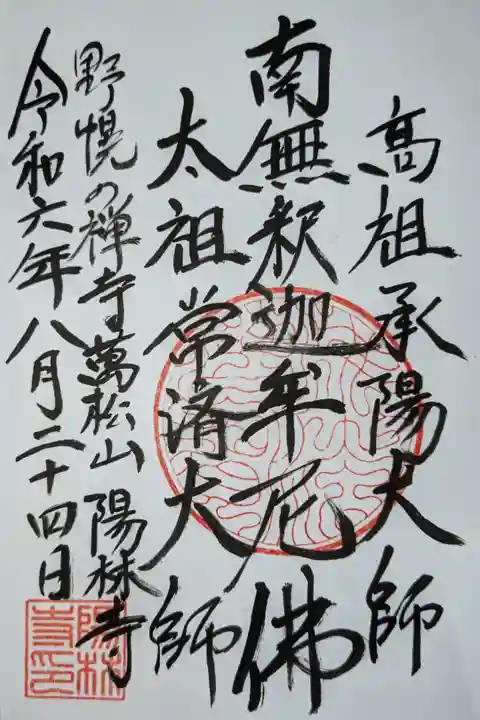 高祖承陽大師
南無釈迦牟尼佛
太祖常済大師
野幌の禅寺萬松山陽林寺
令和六年八月二十四日
陽林寺印